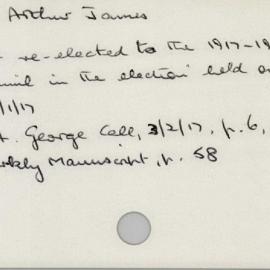 Arthur James
re-elected to the 1917-19
in the election held on
/1/17
. George Call, 3/2/17, p.6,
Manuscript, p. 58